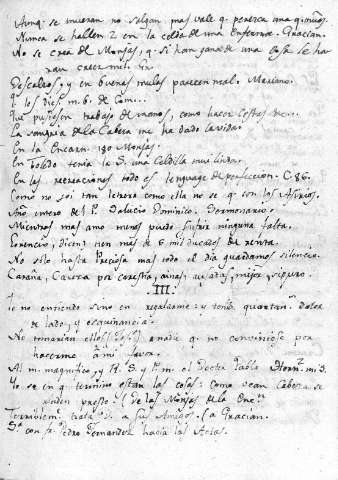 Aunq. se mueran no salgan, mas vale q. perezca una q. muchos.
Nunca se hallen 2 en la celda de una enferma. Gracian.
No se crea de Monjas, q. si han gana de una cosa se ha-
ran creer mil.
Descalzos, y en buenas mulas parecen mal. Mariano.
Y los dies m. b. de Com...
Que pusiesen trabajo de manos, como hacer Cestas &c.
La sangria de la Cabeza me ha dado la vida.
En la Encarn. 130 Monjas.
En Toledo tenia la S. una Celdilla mui linda.
En las recreaciones todo es lenguage de perfeccion. C. 86.
Como no soi tan letrera como ella no se q. son los Asirios.
Año entero de P. Salucio Dominico: Sermonario.
Mientras mas amo menos puedo sufrir ninguna falta.
Lorencio, dicen tien mas de 6 mil ducados de renta.
No solo hasta Preciosa mas todo el dia guardamos silencio.
Caraña, Carera por carestia, ainas, aiudas, mijor, siguro.
.III.
Yo no entiendo sino en regalarme: y tenia quartan.s dolor
de lado, y esquinancia.
No tomarian ellos esos a nadie q. no conviniese por
hacerme á mi favor.
Al m. magnifico, y R. S. y P. m. el Doctor Pablo Hern.z m. S.
Yo se en q. termino estan las cosas: como vean Cabeza se
rinden presto. (de las Monjas de la Enc.n
Terriblem. trata Ds. a sus Amigos. (a Gracian.
S.a con fr. Pedro Fernandez hacia las Actas.